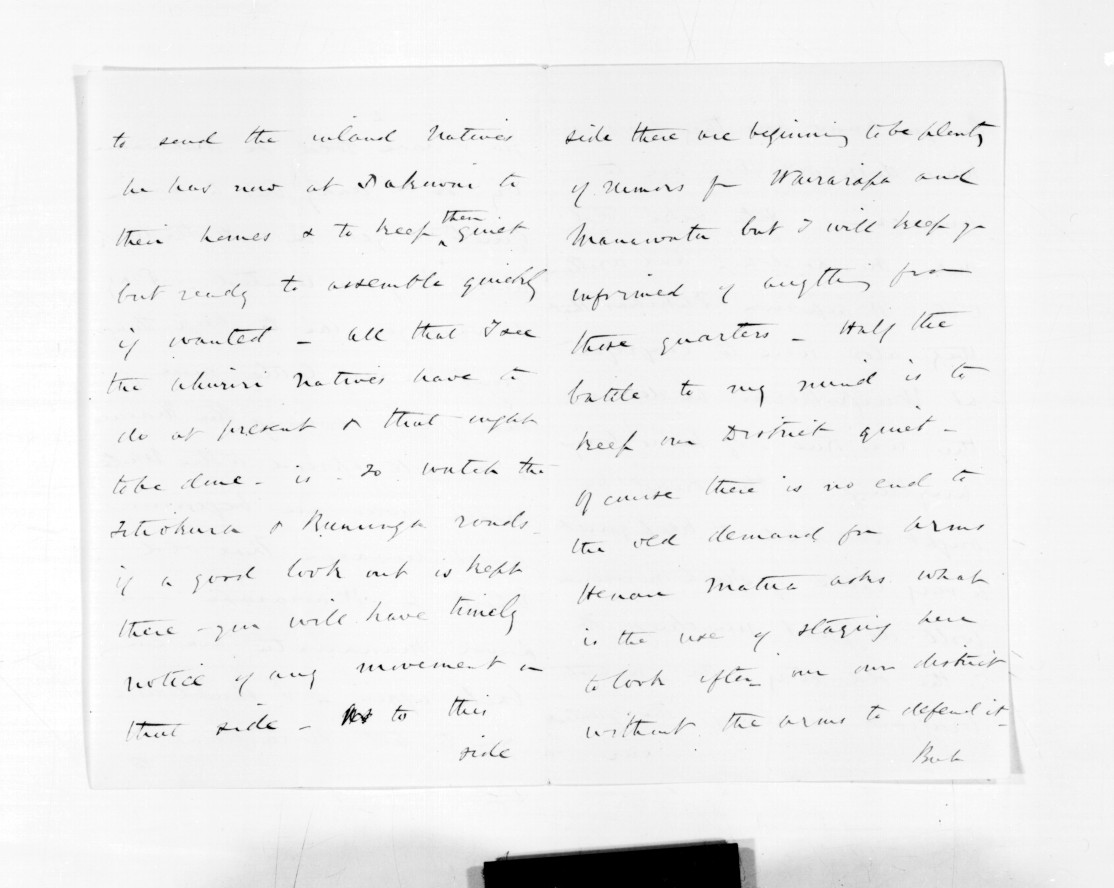 to send the inland Natives
he has now at Pakowai to
their homes & to keep them quiet
but ready to assemble quickly
if wanted - all that I see
the Ahuriri Natives have to
do at present & that ought
to be done - is - to watch the
Titiokura & Runanga roads -
if a good look out is kept
there - you will have timely
notice of any movement on
that side - As to this
side
side there are beginning to be plenty
of rumors fm Wairarapa and
Manawatu but I will keep yo
informed of anything from
those quarters - Half the
battle to my mind is to
keep our District quiet -
Of course there is no end to
the old demand for arms
Henare Matua asks what
is the use of staying here
to look after our own district
without the arms to defend it -
But